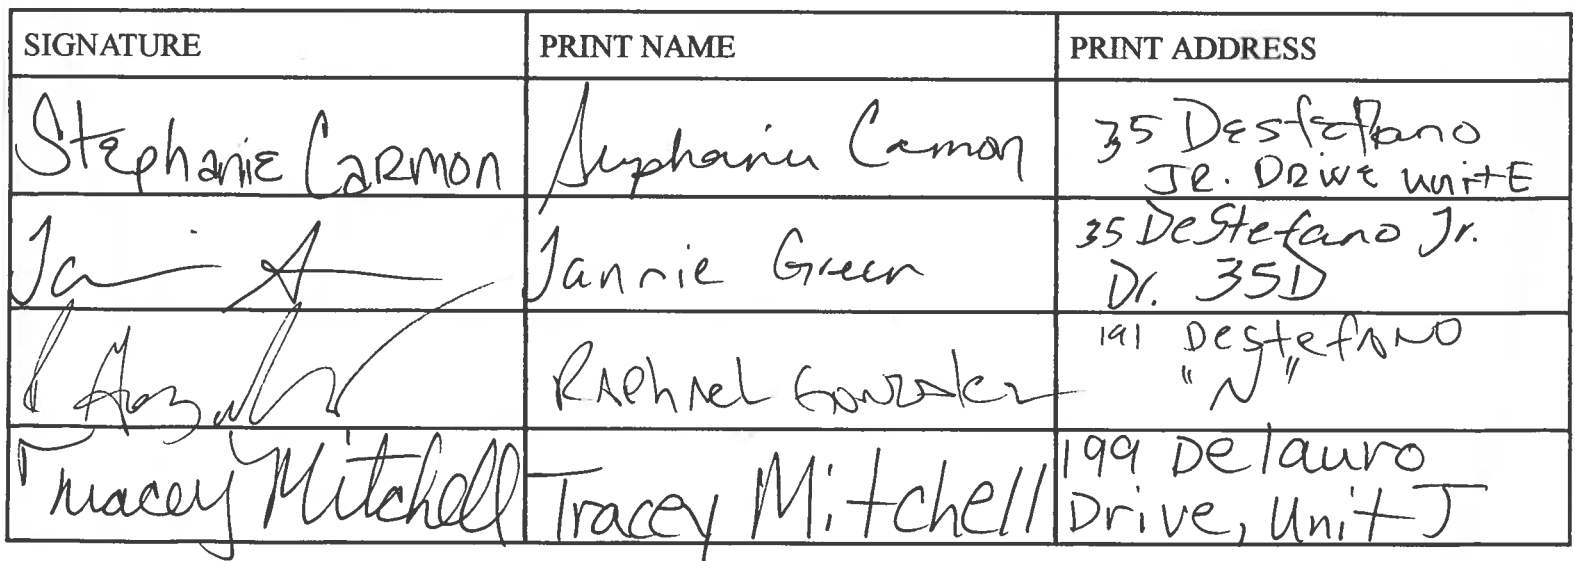 SIGNATURE PRINT NAME PRINT ADDRESS
Stephanie Carmon Stephanie Carmon 35 Destefano
JR. DRIVE unit E
Jannie Green 35 DeStefano Jr.
Dr. 35D
Raphael Gonzalez 191 DestefANO
"N"
Tracey Mitchell Tracey Mitchell 199 Delauro
Drive, Unit J